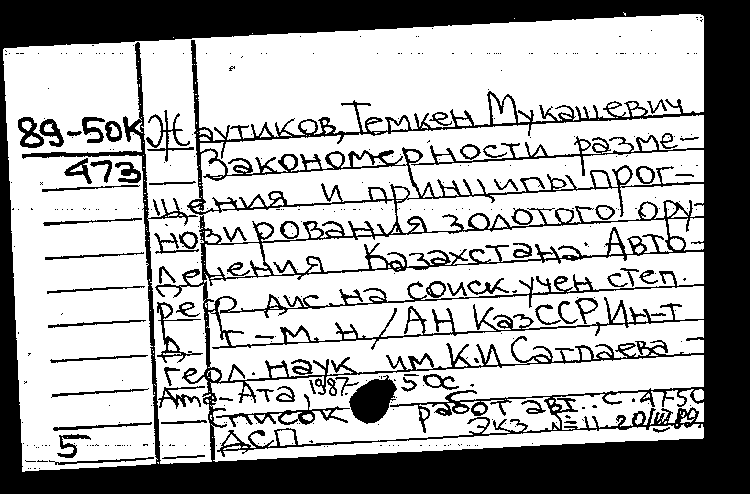 89-50К Жаутиков, Темкен Мукашевич
473 Закономерности разме-
щения и принципы прог-
нозирования золотого ору-
денения Казахстана: Авто-
реф. дис. на соиск. учен. степ.
д. г.-м. н. / АН КазССР, Ин-т
геол. наук им. К.И Сатпаева. -
Алма-Ата, 1987. - 50 с.
Список работ авт.: с. 47-50
ДСП. Экз. № 11 20/III 89
5